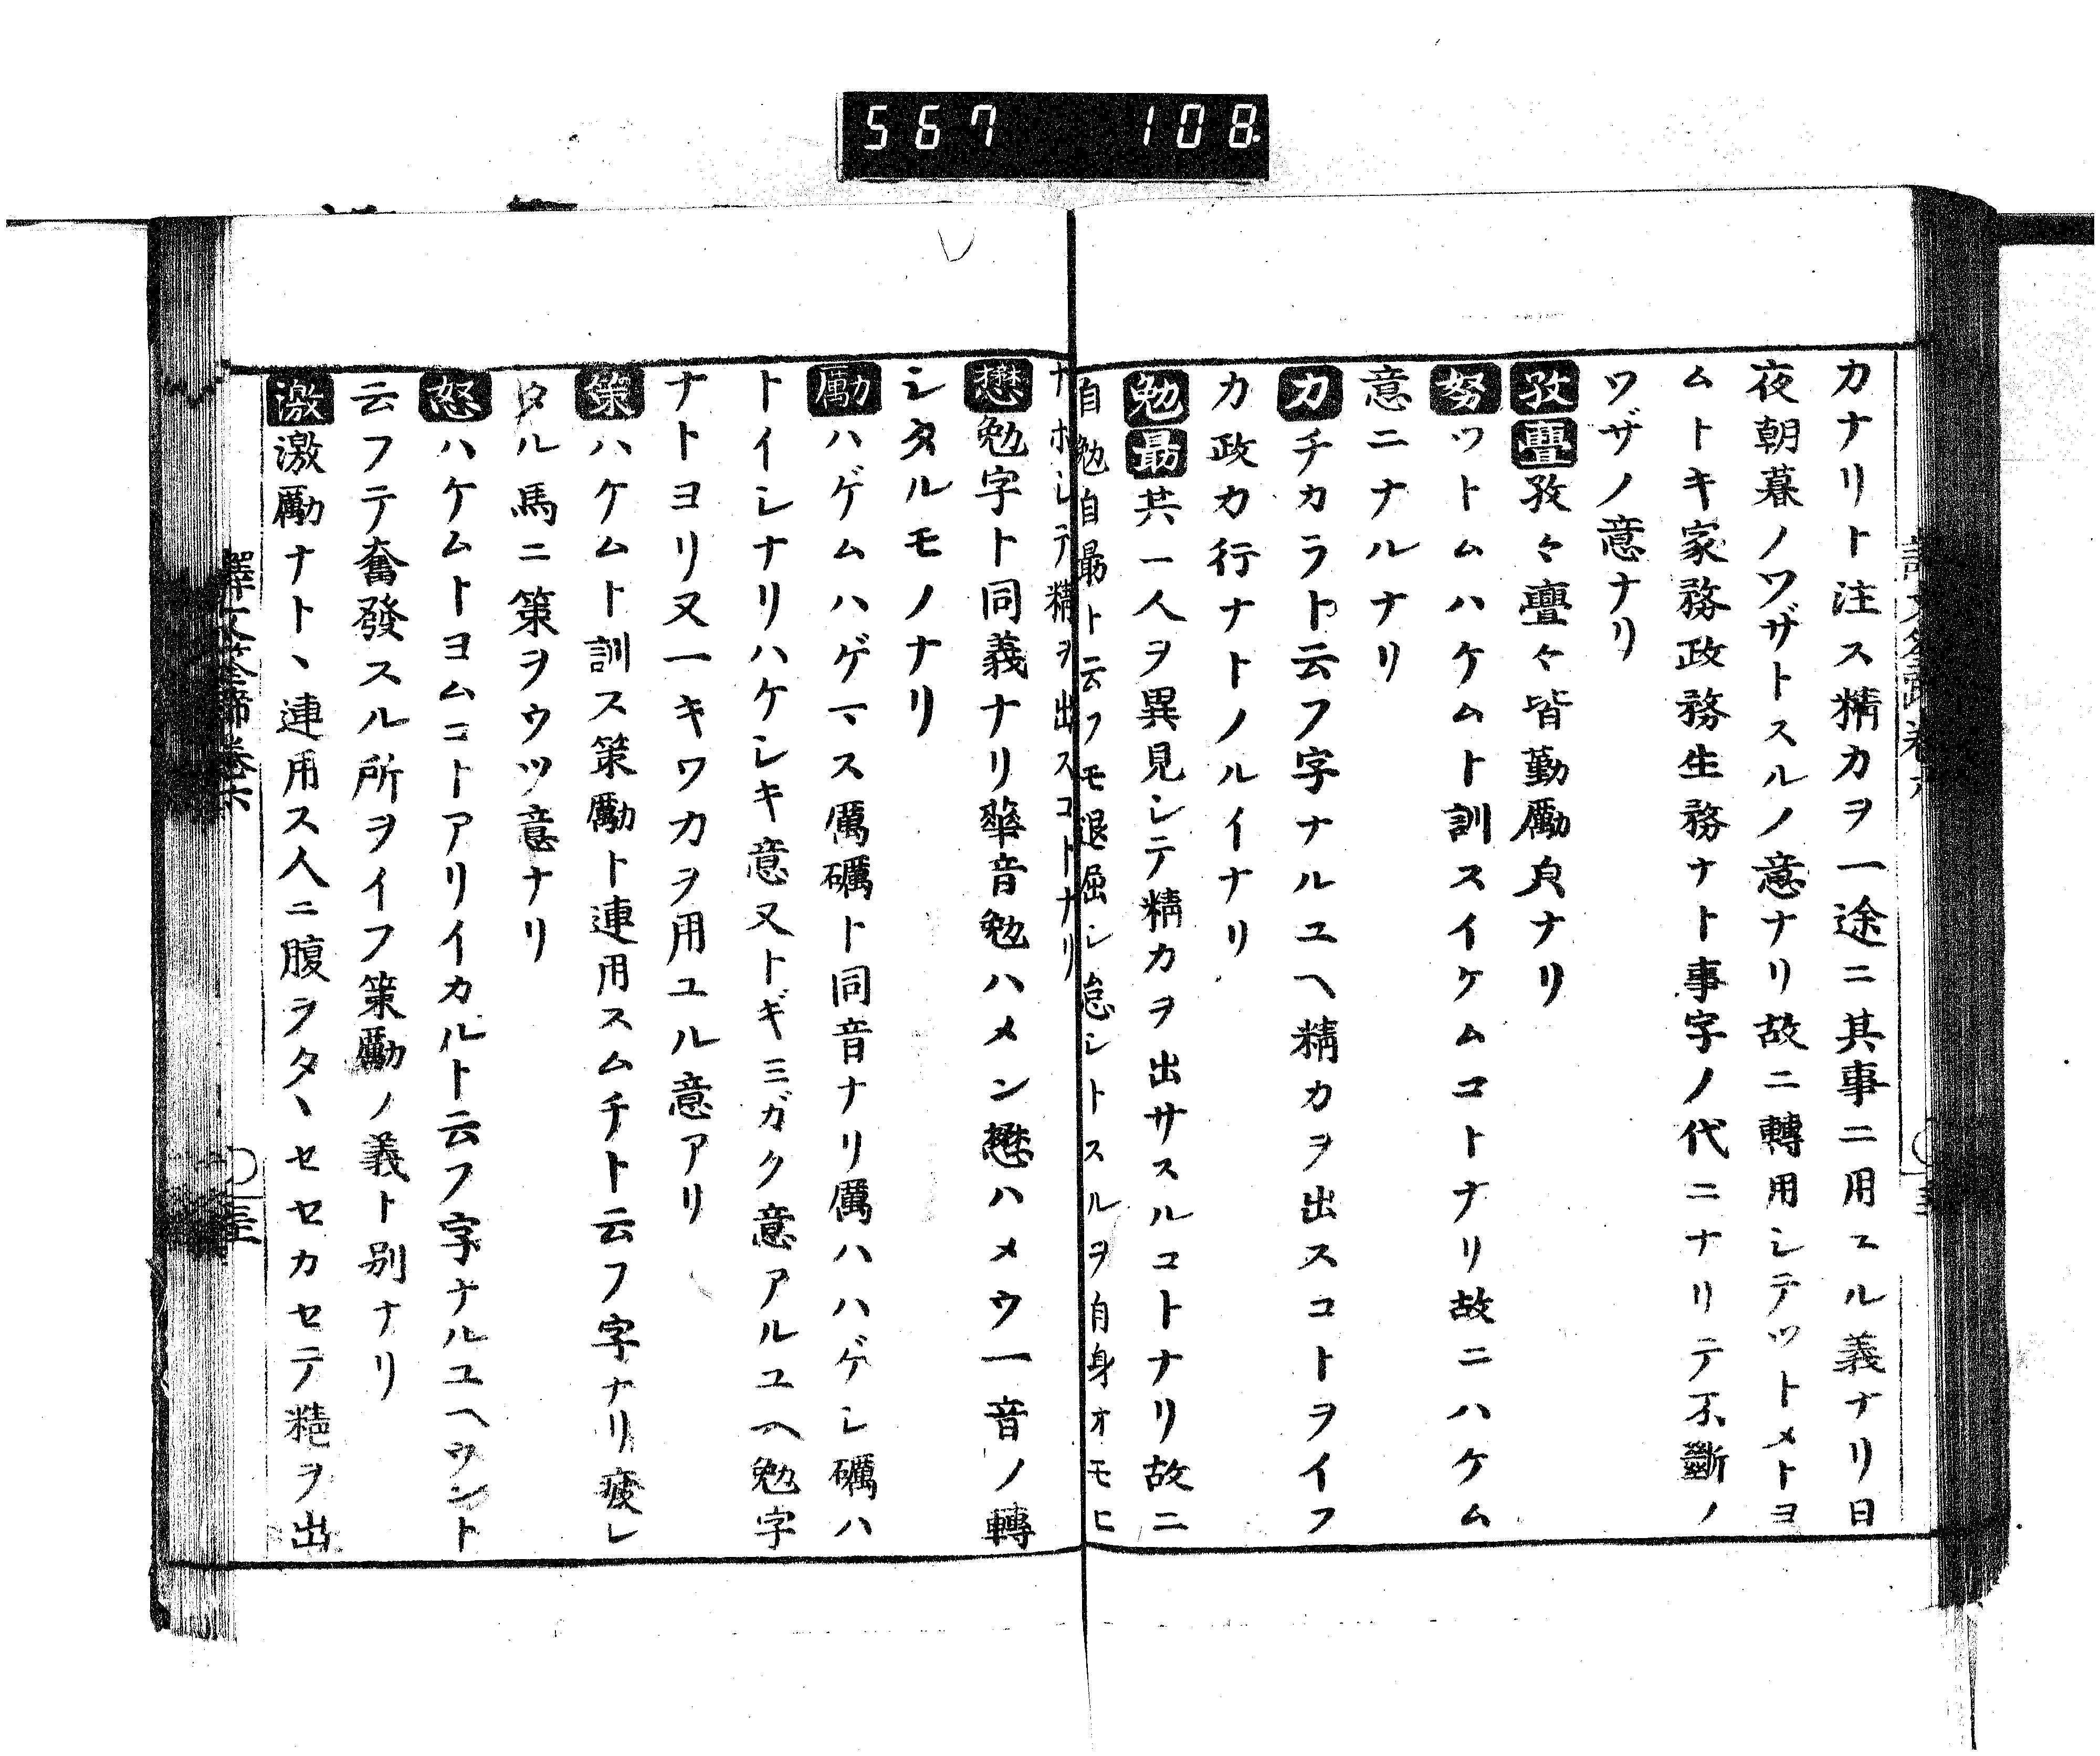 567 108
力ナリト注ス精力ヲ一途ニ其事ニ用ユル義ナリ日
夜朝暮ノワザトスルノ意ナリ故ニ轉用シテツトメトヨ
ムトキ家務政務生務ナト事字ノ代ニナリテ不斷ノ
ワザノ意ナリ
孜亹孜々亹々皆勤勵皃ナリ
努ツトムハケムト訓スイケムコトナリ故ニハケム
意ニナルナリ
力チカラト云フ字ナルユヘ精力ヲ出スコトヲイフ
力政力行ナトノルイナリ
勉勗共一人ヲ異見シテ精力ヲ出サスルコトナリ故ニ
自勉自勗ト云フモ退屈シ怠シトスルヲ自身オモヒ
ナホシテ精ヲ出スコトナリ
懋勉字ト同義ナリ華音勉ハメン懋ハメウ一音ノ轉
シタルモノナリ
勵ハゲムハゲマス厲礪ト同音ナリ厲ハハゲシ礪ハ
トイシナリハケシキ意又トギミガク意アルユヘ勉字
ナトヨリ又一キワ力ヲ用ユル意アリ
策ハケムト訓ス策勵ト連用スムチト云フ字ナリ疲レ
タル馬ニ策ヲウツ意ナリ
怒ハケムトヨムコトアリイカルト云フ字ナルユヘウント
云フテ奮發スル所ヲイフ策勵ノ義ト別ナリ
激激勵ナト丶連用ス人ニ腹ヲタ丶セセカセテ精ヲ出
譯文筌蹄卷六